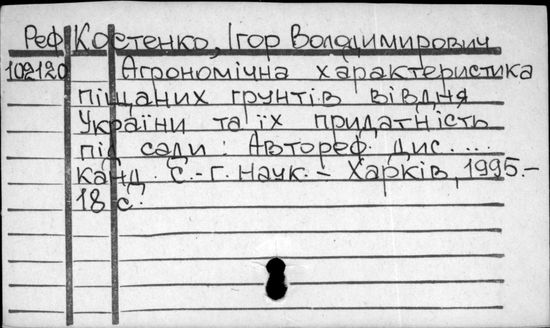 Реф Костенко, Ігор Володимирович
102120 Агрономічна характеристика
піщаних грунтів півдня
України та їх придатність
під сади : Автореф. дис. ....
канд. с.-г. наук. – Харків, 1995.–
18 с.